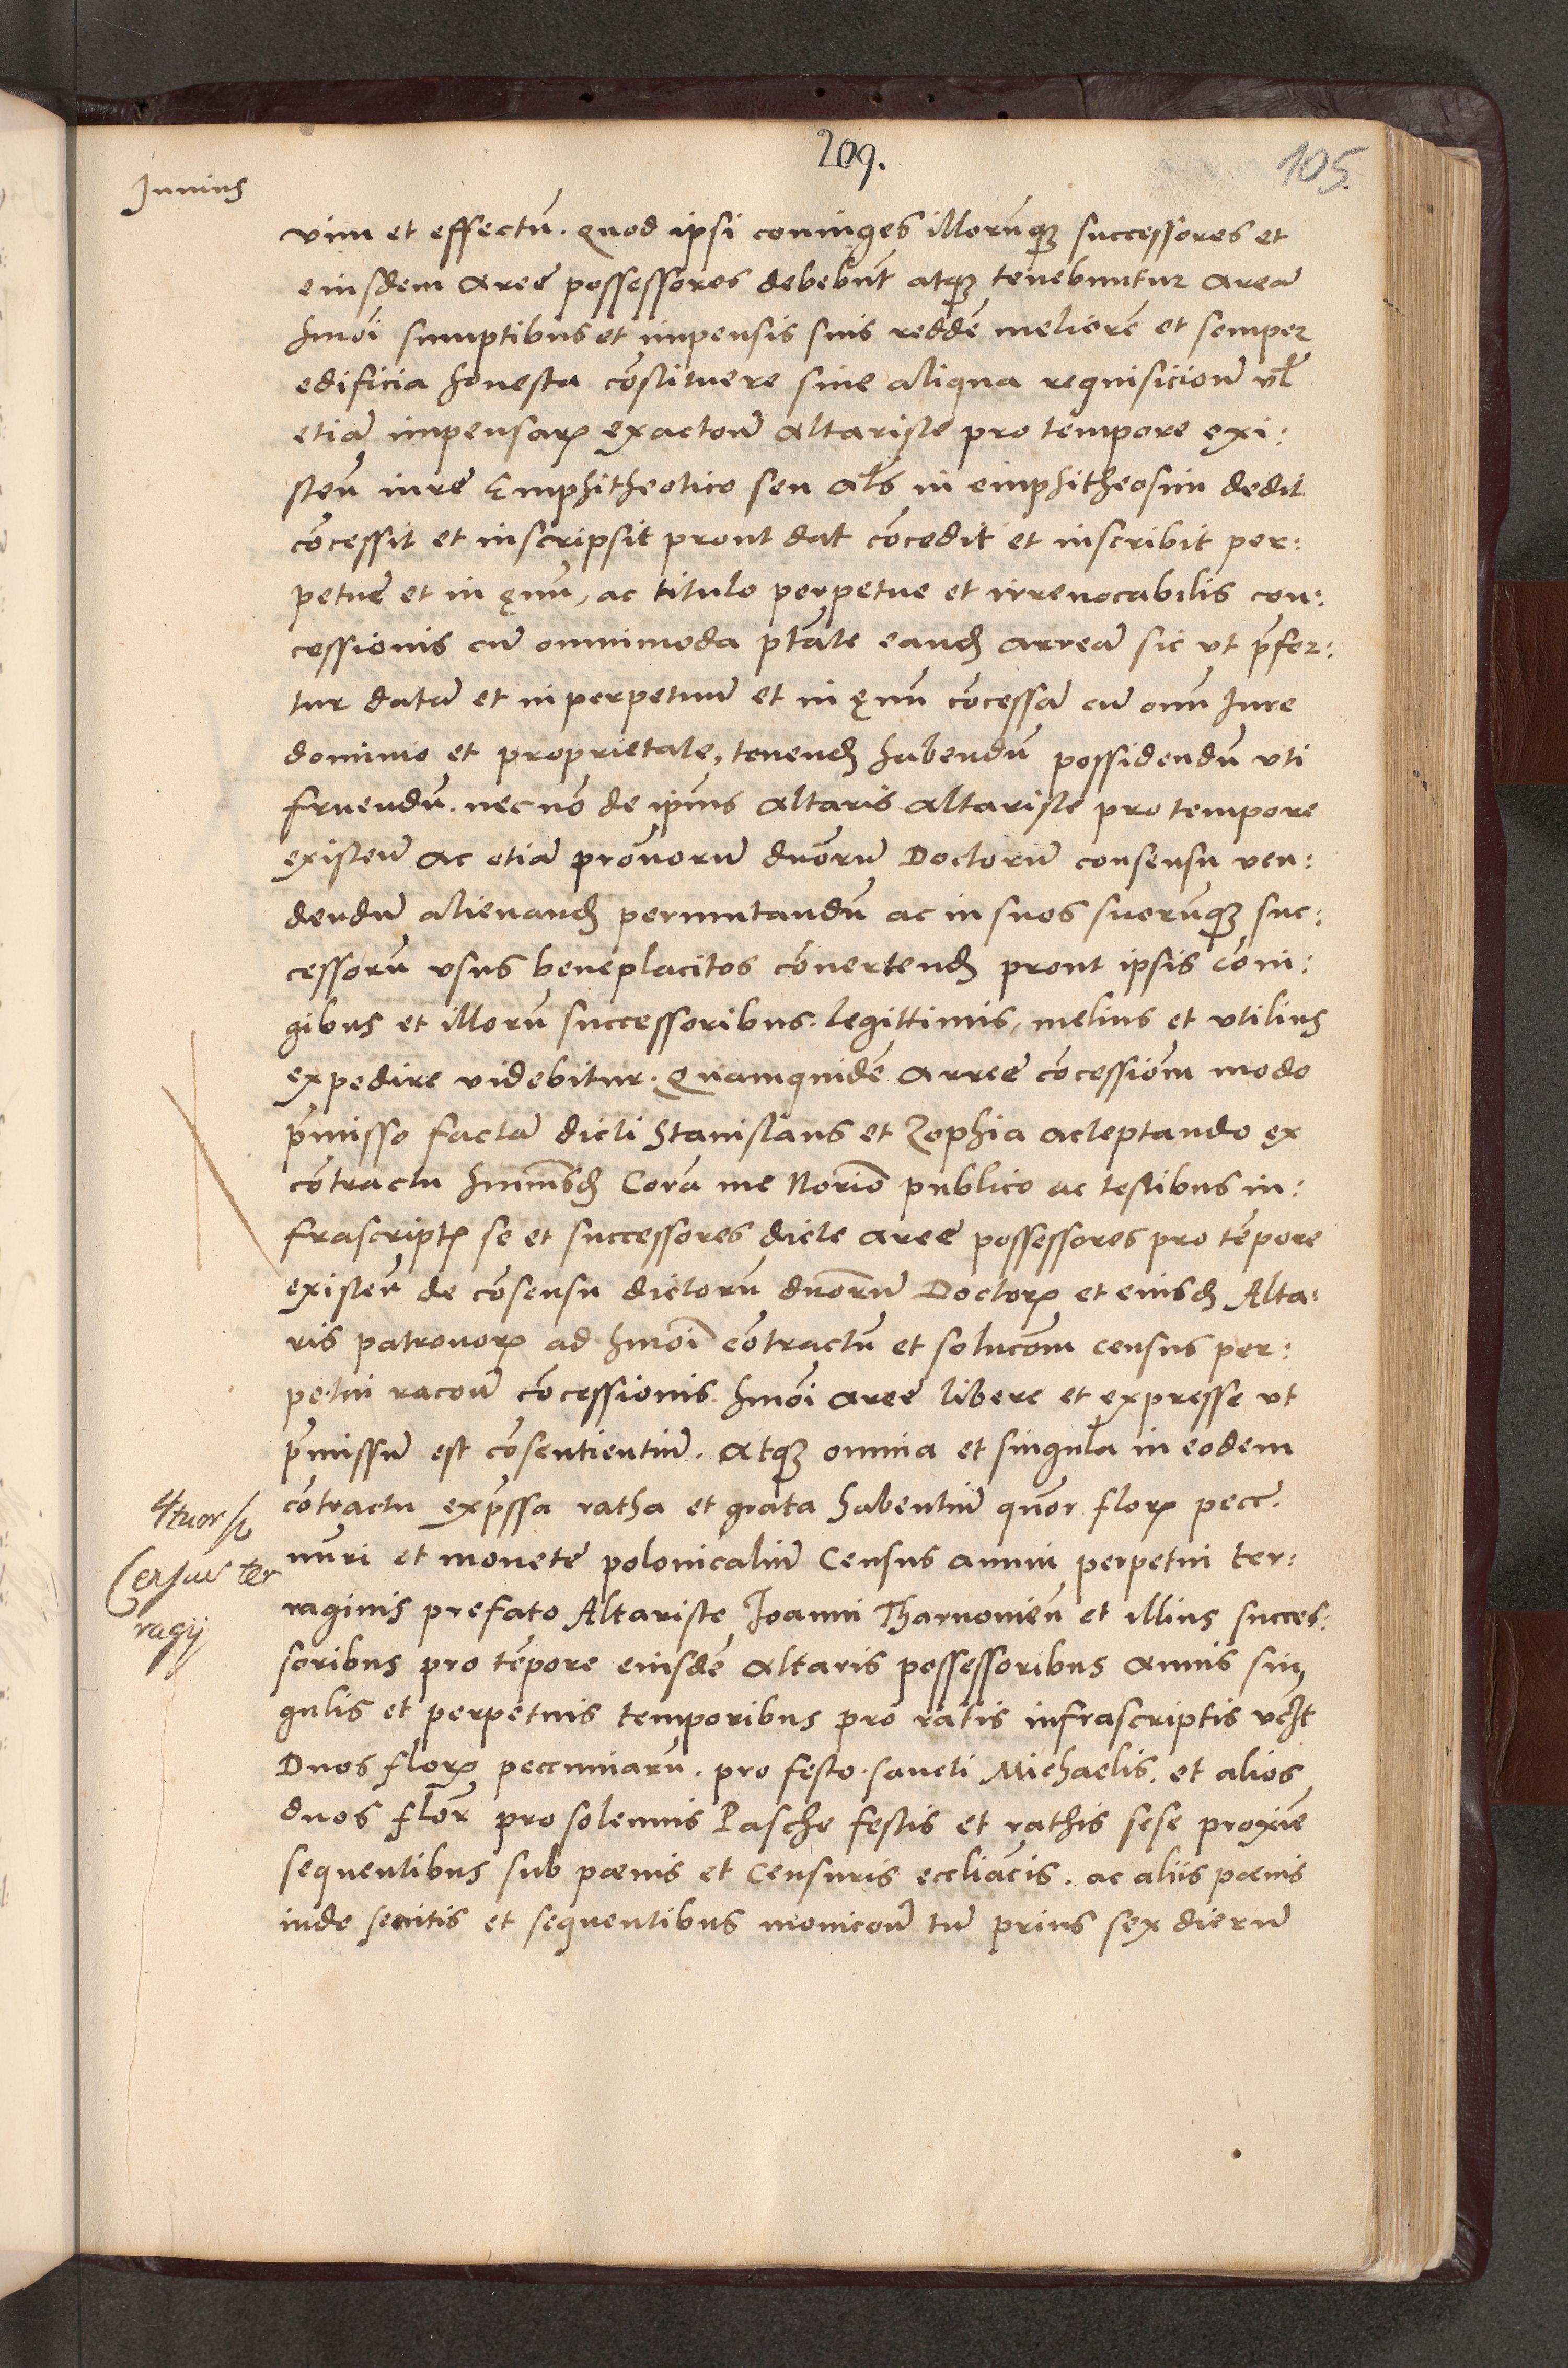 209.
105.
Junius
vim et effectū. Quod ipsi coniuges illorūq₃ successores et
eiusdem areę possessores debebūt atq₃ tenebuntur areā
hmōi sumptibus et impensis suis reddē meliorē et semper
edificia honesta cōstituere sine aliqua requisicioñ vł
etiā impensaꝝ exactoñ altariste pro tempore exi:
steñ iure Emphitheotico seu als in emphitheosim dedit
cōcessit et inscripsit prout dat cōcedit et inscribit per:
petue et in ęuū, ac titulo perpetue et irreuocabilis con:
cessionis cū omnimoda ptāte eandȝ arreā sic vt p̄fer:
tur datā et in perpetuū et in ęuū cōcessā cū om̄i Jure
dominio et proprietate, tenendȝ habendū possidendū uti
fruendū. nec nō de ip̄ius altaris altariste pro tempore
existeñ ac etiā prōnorū duorū Doctorū consensu ven:
dendū alienandȝ permutandū ac in suos suorūq₃ suc:
cessorū vsus beneplacitos cōuertendȝ prout ipsis cōiu:
gibus et illorū successoribus legittimis, melius et vtilius
expedire videbitur. Quamquidē arreę cōcessioēm modo
p̄misso factā dicti Stanislaus et Zophia acceptando ex
cōtractu hmōi Corā me Norio publico ac testibus in:
frascriptꝭ se et successores dicte areę possessores pro tēpore
existeñ de cōsensu dictorū duorū Doctoꝝ et eiusdȝ Alta:
ris patronoꝝ ad hmōi cōtractū et solucōem census per:
petui racoñ cōcessionis hmōi areę libere et expresse vt
p̄missū est cōsentientiū. atq₃ omnia et singula in eodem
cōtractu exp̄ssa ratha et grata habentiū quōr floꝝ pecc.
nūri et monete polonicaliū Census annui perpetui ter:
4tuor fl
Census ter
ragij
raginis prefato Altariste Joanni Tharnouieñ et illius succes:
soribus pro tēpore eiusdē altaris possessoribus annis sin,
gulis et perpetuis temporibus pro ratis infrascriptis vcȝt
Duos floꝝ peccuniarū. pro festo sancti Michaelis. et alios
duos flōr pro solennis Pasche festis et rathis sese proxie
sequentibus sub pœnis et Censuris eccliacis. ac aliis pœnis
inde secutis et sequentibus monicoñ tn̄ prius sex dierū